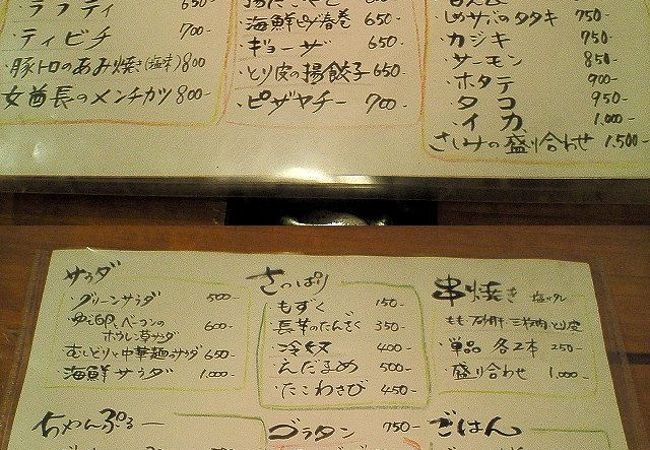 ・ラフティ 650-
・ティビチ 700-
・豚トロのあみ焼き(塩本) 800
・女酋長のメンチカツ 800-
・海鮮ピザ春巻 650-
・ギョーザ 650-
・とり皮の揚餃子 650-
・ピザヤチー 700-
・しめサバのタタキ 750-
・カジキ 750-
・サーモン 850-
・ホタテ 900-
・タコ 950-
・イカ 1,000-
さしみの盛り合わせ 1,500-
サラダ
・グリーンサラダ 500-
・ゆで卵、ベーコンのホウレン草サダ 600-
・むしどりと中華麺のサダ 650-
・海鮮サラダ 1,000-
さっぱり
・もずく 150-
・長芋のたんざく 350-
・冷奴 400-
・えだまめ 500-
・たこわさび 450-
串焼き 塩orタレ
・単品 各2本 250-
・盛り合わせ 1,000-
ちゃんぷるー
グラタン 750-
ごはん